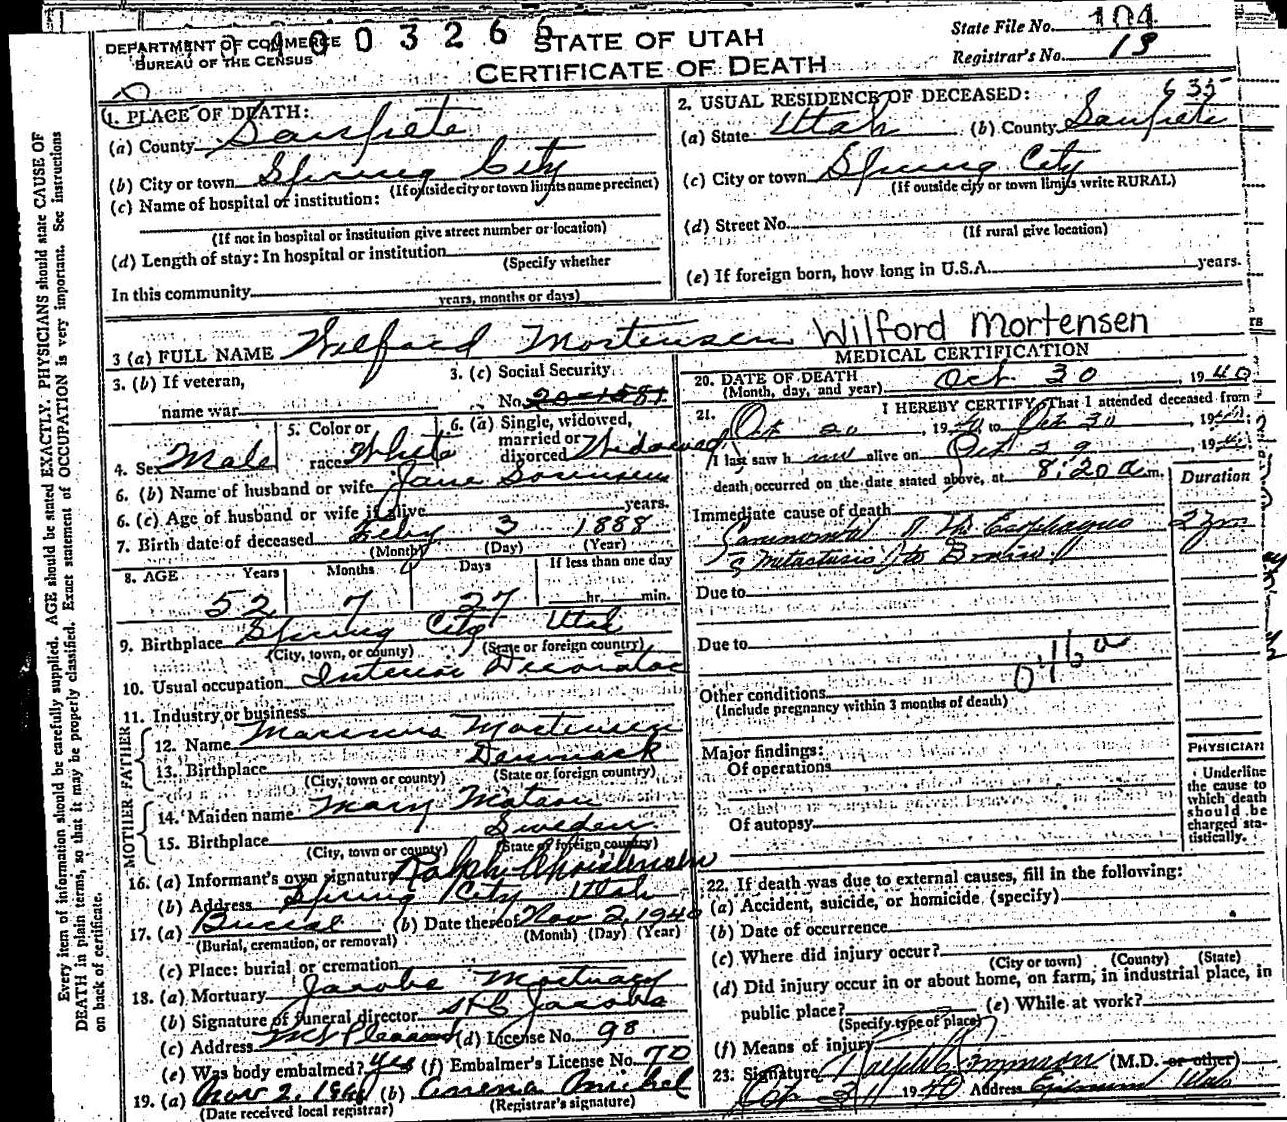 DEPARTMENT OF COMMERCE
BUREAU OF THE CENSUS
STATE OF UTAH
CERTIFICATE OF DEATH
State File No. 104
Registrar's No. 13
1. PLACE OF DEATH:
(a) County Sanpete
(b) City or town Spring City
(If outside city or town limits name precinct)
(c) Name of hospital or institution:
(If not in hospital or institution give street number or location)
(d) Length of stay: In hospital or institution
(Specify whether
In this community
years, months or days)
2. USUAL RESIDENCE OF DECEASED: 635
(a) State Utah (b) County Sanpete
(c) City or town Spring City
(If outside city or town limits write RURAL)
(d) Street No.
(If rural give location)
(e) If foreign born, how long in U.S.A. years.
3 (a) FULL NAME Wilford Mortensen Wilford Mortensen
3. (b) If veteran,
name war
3. (c) Social Security
No.
4. Sex Male
5. Color or
race White
6. (a) Single, widowed,
married or
divorced Widowed
6. (b) Name of husband or wife Jane Sorensen
6. (c) Age of husband or wife if alive years.
7. Birth date of deceased Feby 3 1888
(Month) (Day) (Year)
8. AGE Years Months Days If less than one day
52 7 27 hr. min.
9. Birthplace Spring City Utah
(City, town, or county) (State or foreign country)
10. Usual occupation Interior Decorator
11. Industry or business
FATHER
12. Name Mortensen
13. Birthplace Denmark
(City, town or county) (State or foreign country)
MOTHER
14. Maiden name Mary
15. Birthplace Sweden
(City, town or county) (State or foreign country)
16. (a) Informant's own signature Ralph Christensen
(b) Address Spring City Utah
17. (a) Burial (b) Date thereof Nov 2, 1940
(Burial, cremation, or removal) (Month) (Day) (Year)
(c) Place: burial or cremation
18. (a) Mortuary Jacobs Mortuary
(b) Signature of funeral director Jacobs
(c) Address Mt Pleasant (d) License No. 98
(e) Was body embalmed? Yes (f) Embalmer's License No. 70
19. (a) Nov 2, 1940 (b)
(Date received local registrar) (Registrar's signature)
MEDICAL CERTIFICATION
20. DATE OF DEATH Oct 30, 1940
(Month, day, and year)
21. I HEREBY CERTIFY, That I attended deceased from
Oct 20 1940 to Oct 30, 1940
I last saw him alive on Oct 29, 1940
death occurred on the date stated above, at 8:20 a m.
Duration
Immediate cause of death
of the Esophagus
Due to
Due to
Other conditions
(Include pregnancy within 3 months of death)
Major findings:
Of operations
Of autopsy
PHYSICIAN
Underline
the cause to
which death
should be
charged sta-
tistically.
22. If death was due to external causes, fill in the following:
(a) Accident, suicide, or homicide (specify)
(b) Date of occurrence
(c) Where did injury occur?
(City or town) (County) (State)
(d) Did injury occur in or about home, on farm, in industrial place, in
public place? (e) While at work?
(Specify type of place)
(f) Means of injury
23. Signature (M.D. or other)
Oct 31 1940 Address Utah
Every item of information should be carefully supplied. AGE should be stated EXACTLY. PHYSICIANS should state CAUSE OF
DEATH in plain terms, so that it may be properly classified. Exact statement of OCCUPATION is very important. See instructions
on back of certificate.